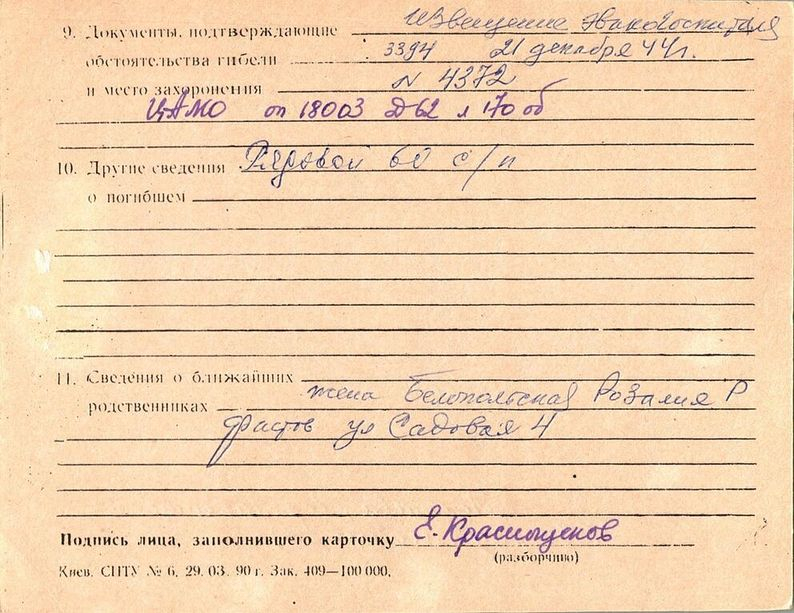 9. Документы, подтверждающие Извещение Эвакогоспиталя
обстоятельства гибели 3394 21 декабря 44г.
и место захоронения N 4372
ЦАМО оп 18003 Д62 л 170 об
10. Другие сведения Рядовой 60 с/п
о погибшем
11. Сведения о ближайших
родственниках жена Белопольская Розалия Р
Фастов ул Садовая 4
Подпись лица, заполнившего карточку Е. Красношенов
(разборчиво)
Киев. СПТУ № 6, 29. 03. 90 г. Зак. 409—100 000.